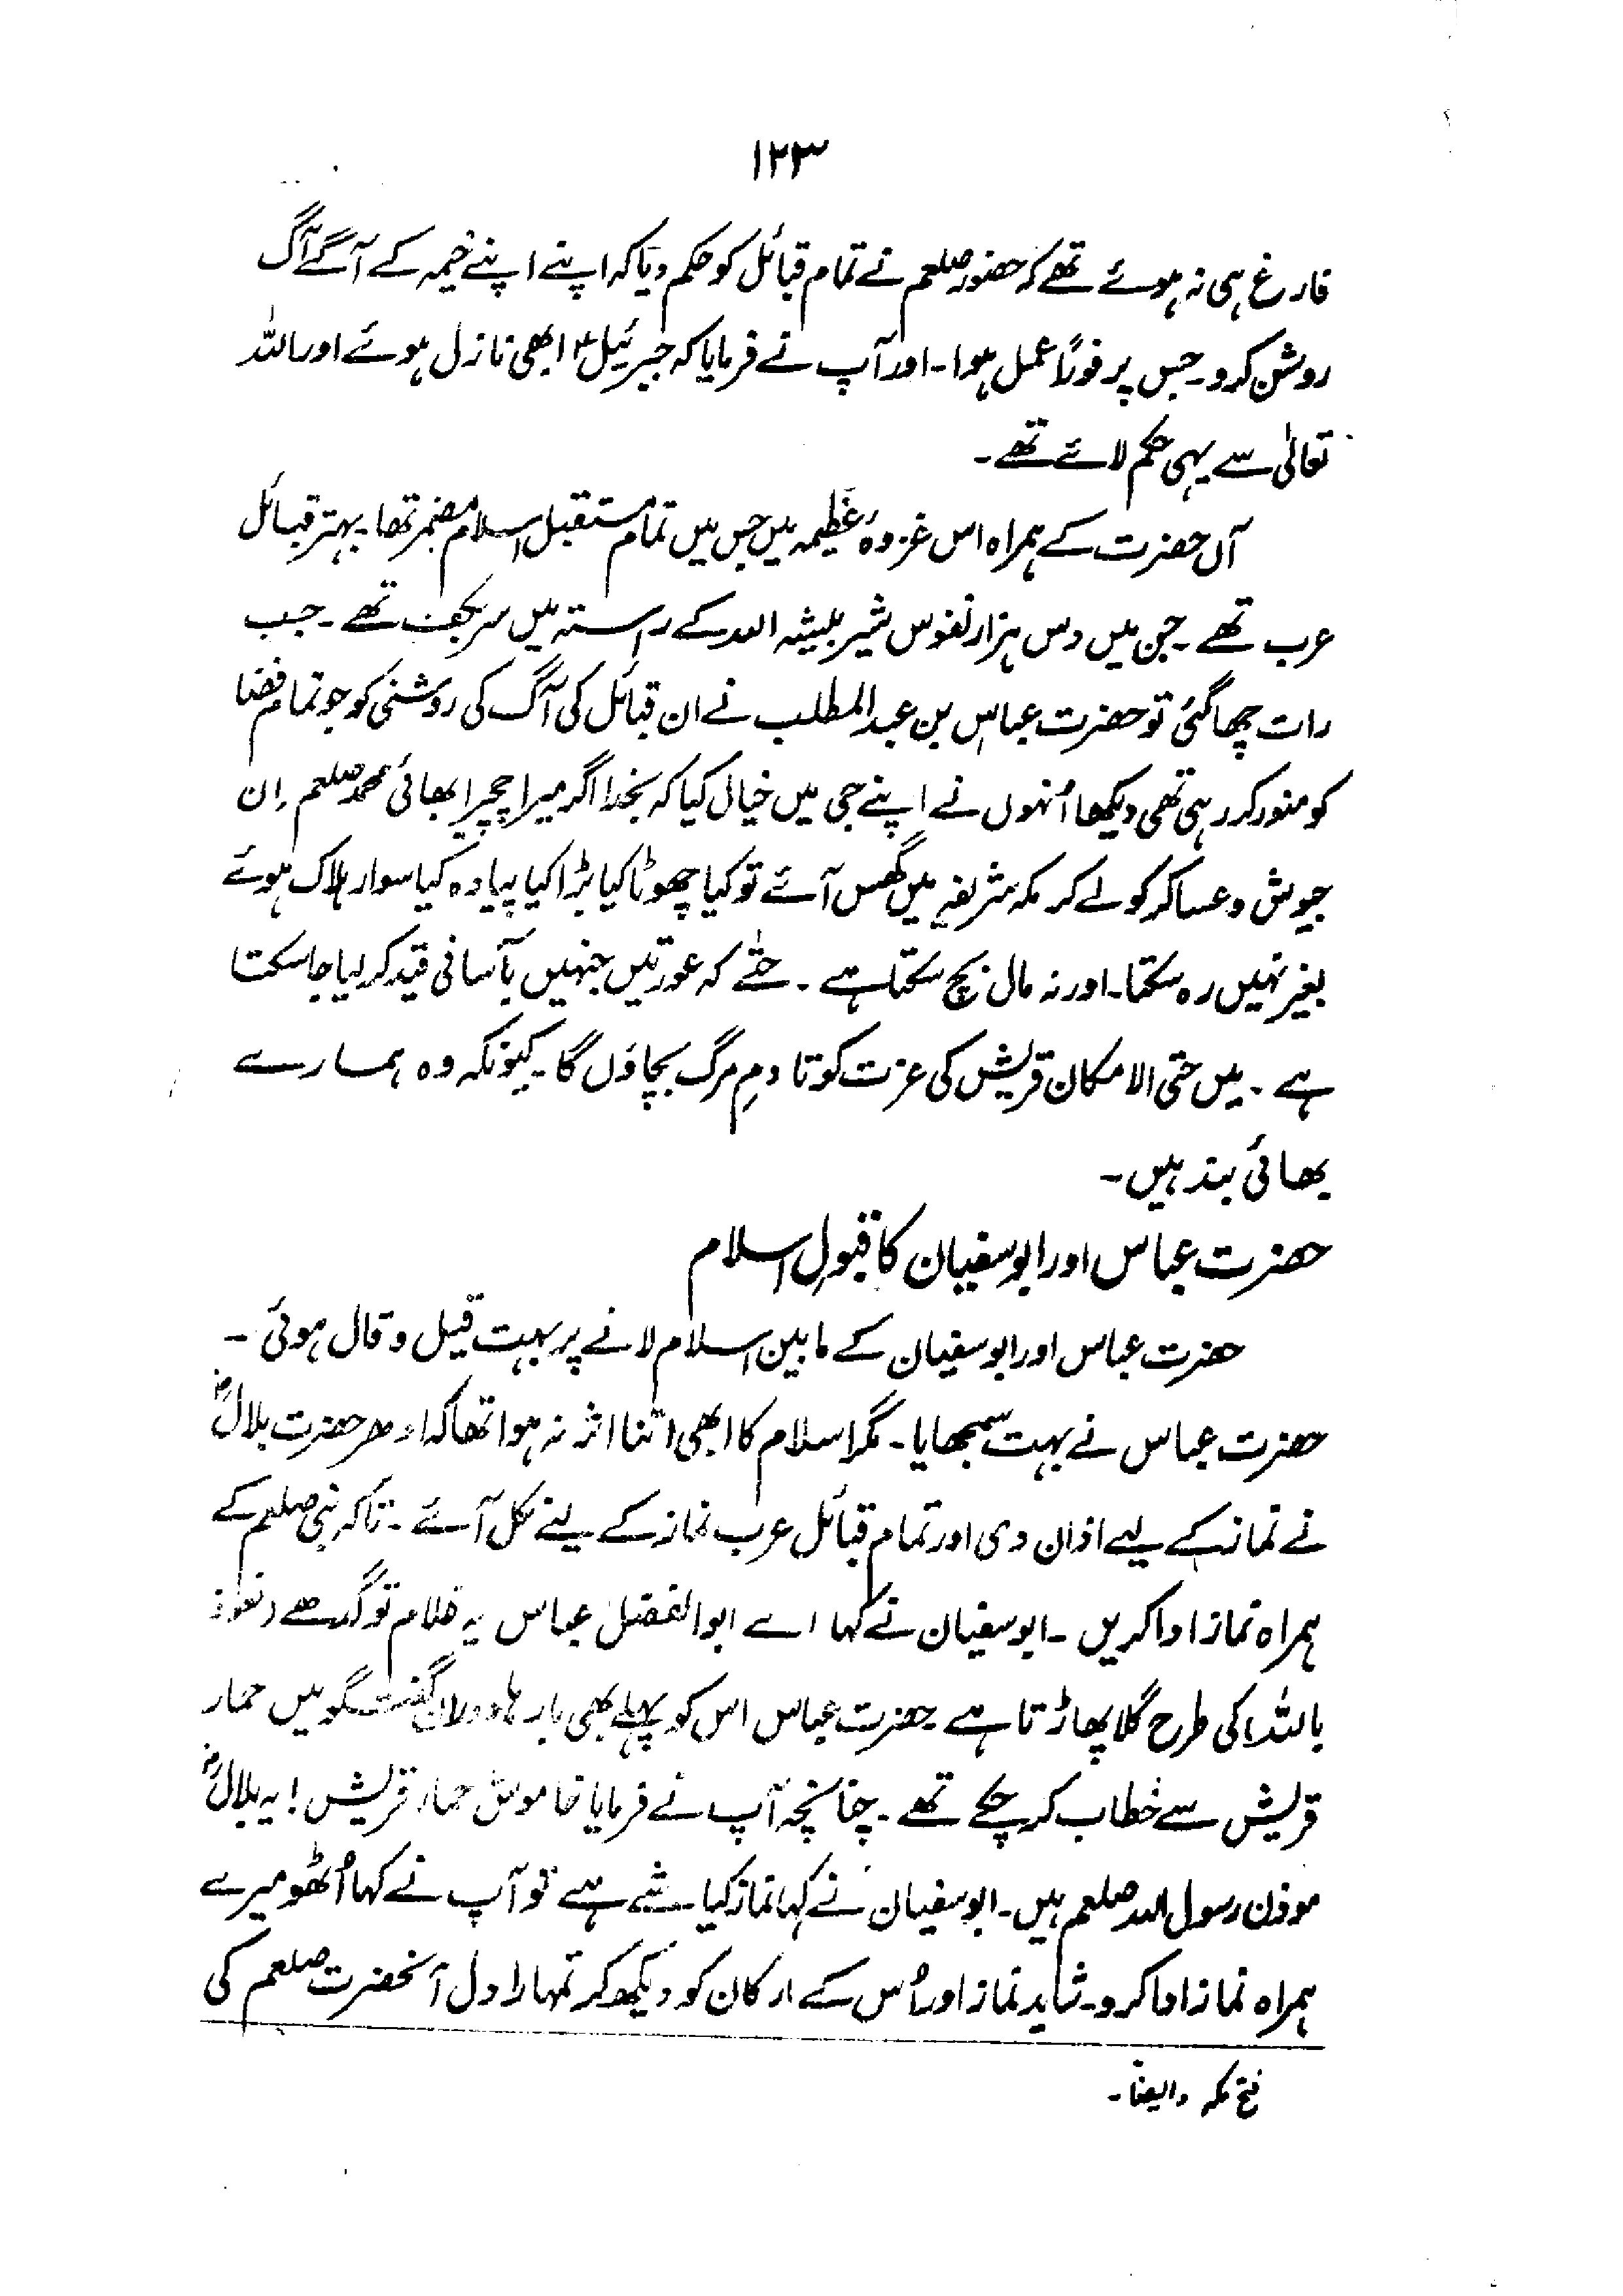 ۱۲۳
فارغ ہی نہ ہوئے تھے کہ حضور صلعم نے تمام قبائل کو حکم دیا کہ اپنے اپنے خیمہ کے آگے آگ
روشن کرو۔ جس پر فوراً عمل ہوا۔ اور آپ نے فرمایا کہ جبرئیلؑ ابھی نازل ہوئے اور اللہ
تعالیٰ سے یہی حکم لائے تھے۔
آں حضرت کے ہمراہ اس غزوہ عظیمہ میں جس میں تمام مستقبل اسلام مضمر تھا۔ بہتر قبائل
عرب تھے۔ جن میں دس ہزار نفوس شیر بیشہ اللہ کے راستہ میں سربکف تھے۔ جب
رات چھا گئی تو حضرت عباس بن عبدالمطلب نے ان قبائل کی آگ کی روشنی کو جو تمام فضا
کو منور کر رہی تھی دیکھا اُنہوں نے اپنے جی میں خیال کیا کہ بخدا اگر میرا چچیرا بھائی محمد صلعم اِن
جیوش و عساکر کو لے کر مکہ شریف میں گھس آئے تو کیا چھوٹا کیا بڑا کیا پیادہ کیا سوار ہلاک ہوئے
بغیر نہیں رہ سکتا۔ اور نہ مال بچ سکتا ہے۔ حتٰے کہ عورتیں جنہیں بآسانی قید کر لیا جا سکتا
ہے۔ میں حتی الامکان قریش کی عزت کو تا دمِ مرگ بچاؤں گا۔ کیونکہ وہ ہمارے
بھائی بند ہیں۔
حضرت عباس اور ابوسفیان کا قبولِ اسلام
حضرت عباس اور ابوسفیان کے مابین اسلام لانے پر بہت قیل و قال ہوئی۔
حضرت عباس نے بہت سمجھایا۔ مگر اسلام کا ابھی اتنا اثر نہ ہوا تھا کہ ادھر حضرت بلالؓ
نے نماز کے لیے اذان دی اور تمام قبائل عرب نماز کے لیئے نکل آئے۔ تاکہ نبی صلعم کے
ہمراہ نماز ادا کریں۔ ابوسفیان نے کہا اے ابوالفضل عباس یہ غلام تو گدھے (نعوذ
باللہ) کی طرح گلا پھاڑتا ہے۔ حضرت عباس اس کو پہلے بھی بارہا دوران گفتگو میں حمار
قریش سے خطاب کر چکے تھے۔ چنانچہ آپ نے فرمایا خاموش حمار قریش! یہ بلالؓ
موذن رسول اللہ صلعم ہیں۔ ابوسفیان نے کہا نماز کیا شے ہے تو آپ نے کہا اُٹھو میرے
ہمراہ نماز ادا کرو۔ شاید نماز اور اُس کے ارکان کو دیکھ کر تمہارا دل آنحضرت صلعم کی
فتح مکہ ۔ ایضاً۔